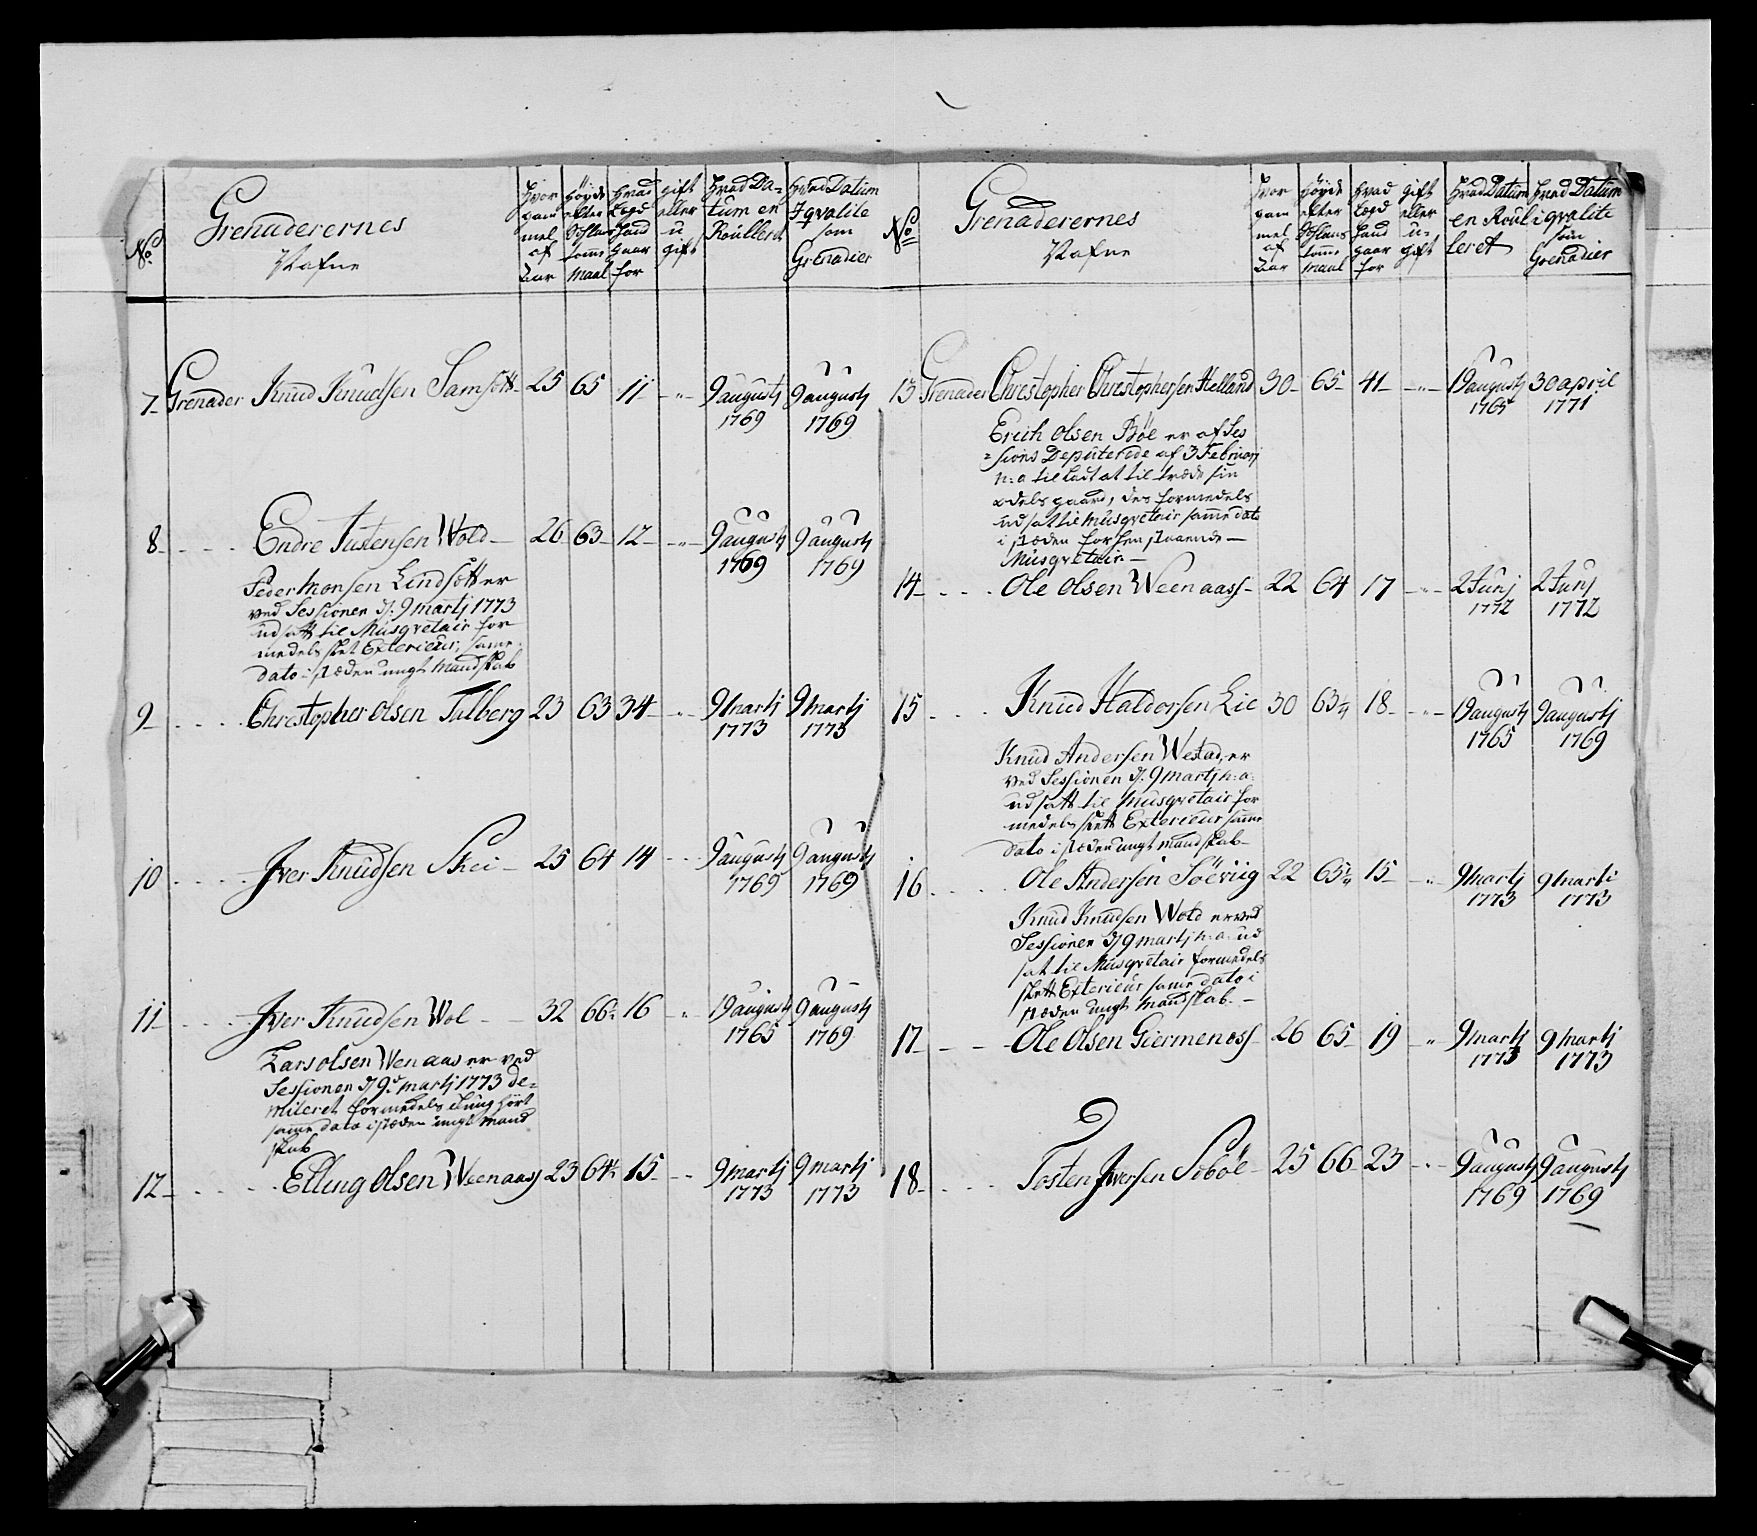 No
Grenaderernes
Nafne
Hvor gammel af Aar
Høyde efter Sohlens tomme maal
Hvad Legd Hand gaar for
gift eller u gift
Hvad Da=
tum en
Roulleret
Hvad Datum
I qvalite
som
Grenadier
7 Grenader Knud Knudsen Samsøtt 25 65 11 - " - 9 augustj 9 augustj
1769 1769
8 - - - Endre Justensen Wold - 26 63 12 - " - 9 augustj 9 augustj
1769 1769
Peder Monsen Lindsøtt er
ved Sessionen d: 9 martj 1773
udsatt til Musqvetair for
medelst slet Exterieur, same
dato i stæden ungt Mandskab
9 - - - Christopher olsen Talberg 23 63 34 - " - 9 Martj 9 Martj
1773 1773
10 - - - Iver Knudsen Skei - 25 64 14 - - 9 augustj 9 augustj
1769 1769
11 - - - Iver Knudsen Wol - - 32 66 16 - " 19 augustj 9 augustj
1765 1769
Lars olsen Wenaas er ved
Sessionen d 9de martj 1773 de=
miteret formedelst
samme dato i stæden ungt Mand
skab
12 - - - Elling olsen Weenaas 23 64 15 - - 9 martj 9 martj
1773 1773
No
Grenaderernes
Nafne
Hvor gam mel af Aar
Høyde efter Sohlens tomme Maal
Hvad Legd Hand gaar for
gift eller u= gift
Hvad Datum
en Roul
leret
Hvad Datum
i qvalite
som
Grenadier
13 Grenader Christopher Christophersen Helland 30 - 65 - 41 - " - 19 augustj 30 april
1765 1771
Erich olsen Bøe er af Ses
=sions Deputerede af 3 Februarj
h: a tilladt at til træde sin
odels gaard, des formedelst
udsat til Musqvetair samme dato
i stæden for hen staaende -
Musqvetair -
14 - - - Ole olsen Weenaass - 22 64 17 - " - 2 Junj 2 Junj
1772 1772
15 - - - Knud Haldorsen Lie 30 63¼ 18 - " - 19 augustj 9 augustj
1765 1769
Knud Andersen Westad, er
ved Sessionen d: 9 martj h: a:
udsatt til Musqvetair for
medelst slett Exterieur samme
dato i stæden ungt Mandskab -
16 - - - Ole Andersen Söeviig 22 63¼ 15 - " - 9 Martj 9 Martj
1773 1773
Knud Knudsen Wold er ved
Sessionen d 9 martj h: a: ud
sat til Musqvetair formedelst
slett Exterieur same dato i
stæden ungt Mandskab. -
17 - - - Ole Olsen Giermenæss - 26 65 19 - " 9 martj 9 Martj
1773 1773
18 - - - Tosten Iversen Soböe - 25 66 23 - " - 9 augustj 9 augustj
1769 1769